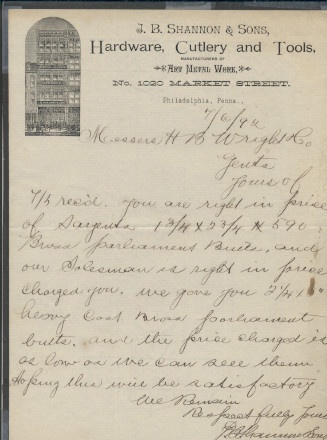 J. B. SHANNON & SONS,
Hardware, Cutlery and Tools,
MANUFACTURERS OF
ART METAL WORK,
No. 1020 MARKET STREET.
Philadelphia, Penna.,
7/6/92
Messers H B Wright & Co
Gents
Yours of
7/5 rec'd. You are right in price
of Sargents 1 3/4 x 2 3/4 # 590
Brass parliament Butts, and
our Salesman is right in price
charged you. We gave you
heavy Cast Brass parliament
butts. and the price charged is
as low as we can see them
Hoping this will be satisfactory
We Remain
Respectfully Yours
J B Shannon & Sons